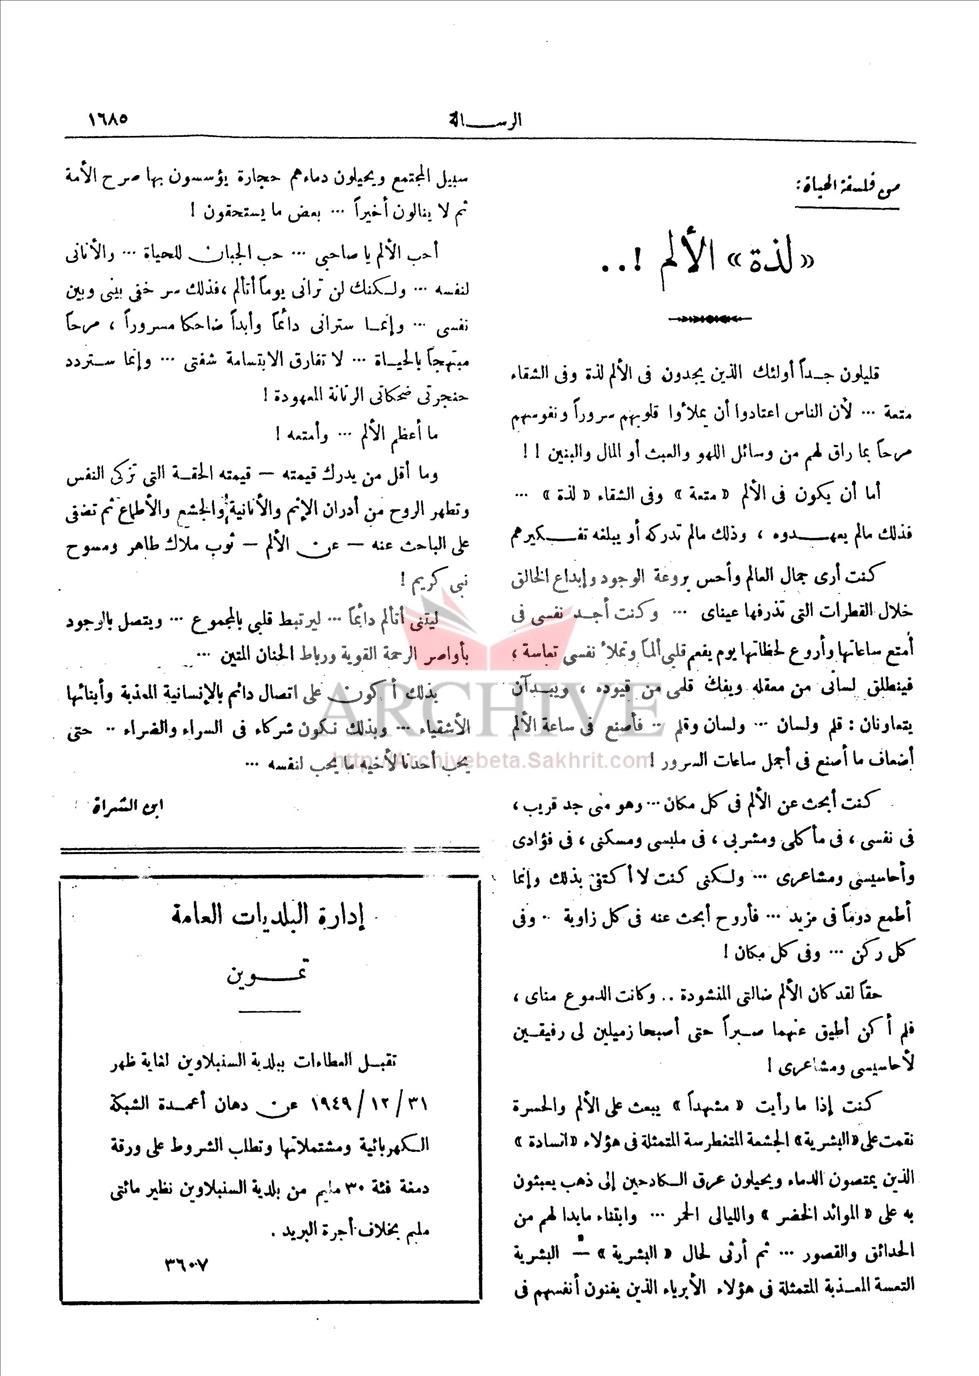 الرسالة
١٦٨٥
من فلسفة الحياة:
«لذة» الألم !..
قليلون جداً أولئك الذين يجدون فى الألم لذة وفى الشقاء
متعة ... لأن الناس اعتادوا أن يملأوا قلوبهم سروراً ونفوسهم
مرحاً بما راق لهم من وسائل اللهو والعبث أو المال والبنين !!
أما أن يكون فى الألم « متعة » وفى الشقاء « لذة » ...
فذلك مالم يعهدوه ، وذلك مالم تدركه أو يبلغه تفكيرهم
كنت أرى جمال العالم وأحس بروعة الوجود وإبداع الخالق
خلال القطرات التى تذرفها عيناى ... وكنت أجد نفسى فى
أمتع ساعاتها وأروع لحظاتها يوم يفعم قلبى ألماً وتملأ نفسى تعاسة ،
فينطلق لسانى من معقله ويفك قلمى من قيوده ، ويبدآن
يتعاونان : قلم ولسان ... ولسان وقلم ... فأصنع فى ساعة الألم
أضعاف ما أصنع فى أجمل ساعات السرور !
كنت أبحث عن الألم فى كل مكان ... وهو منى جد قريب ،
فى نفسى ، فى مأكلى ومشربى ، فى ملبسى ومسكنى ، فى فؤادى
وأحاسيسى ومشاعرى ... ولكنى كنت لا أكتفى بذلك وإنما
أطمع دوماً فى مزيد ... فأروح أبحث عنه فى كل زاوية .. وفى
كل ركن ... وفى كل مكان !
حقاً لقد كان الألم ضالتى المنشودة .. وكانت الدموع مناى ،
فلم أكن أطيق عنهما صبراً حتى أصبحا زميلين لى رفيقين
لأحاسيسى ومشاعرى !
كنت إذا ما رأيت « مشهداً » يبعث على الألم والحسرة
نقمت على «البشرية» الجشعة المتغطرسة المتمثلة فى هؤلاء «السادة»
الذين يمتصون الدماء ويحيلون عرق الكادحين إلى ذهب يعبثون
به على « الموائد الخضر » والليالى الحمر ... وابتغاء مابدا لهم من
الحدائق والقصور ... ثم أرثى لحال « البشرية » — البشرية
التعسة المعذبة المتمثلة فى هؤلاء الأبرياء الذين يفنون أنفسهم فى
سبيل المجتمع ويحيلون دماءهم حجارة يؤسسون بها صرح الأمة
ثم لا ينالون أخيراً ... بعض ما يستحقون !
أحب الألم يا صاحبى ... حب الجبان للحياة ... والأنانى
لنفسه ... ولكنك لن ترانى يوماً أتألم ، فذلك سر خفى بينى وبين
نفسى ... وإنما سترانى دائماً وأبداً ضاحكا مسروراً ، مرحاً
مبتهجاً بالحياة ... لا تفارق الابتسامة شفتى ... وإنما ستردد
حنجرتى ضحكاتى الرنانة المعهودة !
ما أعظم الألم ... وأمتعه !
وما أقل من يدرك قيمته — قيمته الحقة التى تزكى النفس
وتطهر الروح من أدران الإثم والأنانية والجشع والأطماع ثم تضفى
على الباحث عنه — عن الألم — ثوب ملاك طاهر ومسوح
نبى كريم !
ليتنى أتألم دائماً ... ليرتبط قلبى بالمجموع ... ويتصل بالوجود
بأواصر الرحمة القوية ورباط الحنان المتين ...
بذلك أكون على اتصال دائم بالإنسانية المعذبة وأبنائها
الأشقياء ... وبذلك نكون شركاء فى السراء والضراء .. حتى
يحب أحدنا لأخيه ما يحب لنفسه ...
ابن الشراة
إدارة البلديات العامة
تموين
تقبل العطاءات ببلدية السنبلاوين لغاية ظهر
٣١ / ١٢ / ١٩٤٩ عن دهان أعمدة الشبكة
الكهربائية ومشتملاتها وتطلب الشروط على ورقة
دمغة فئة ٣٠ مليم من بلدية السنبلاوين نظير مائتى
مليم بخلاف أجرة البريد .
٣٦٠٧
ARCHIVE
http://Archivebeta.Sakhrit.com